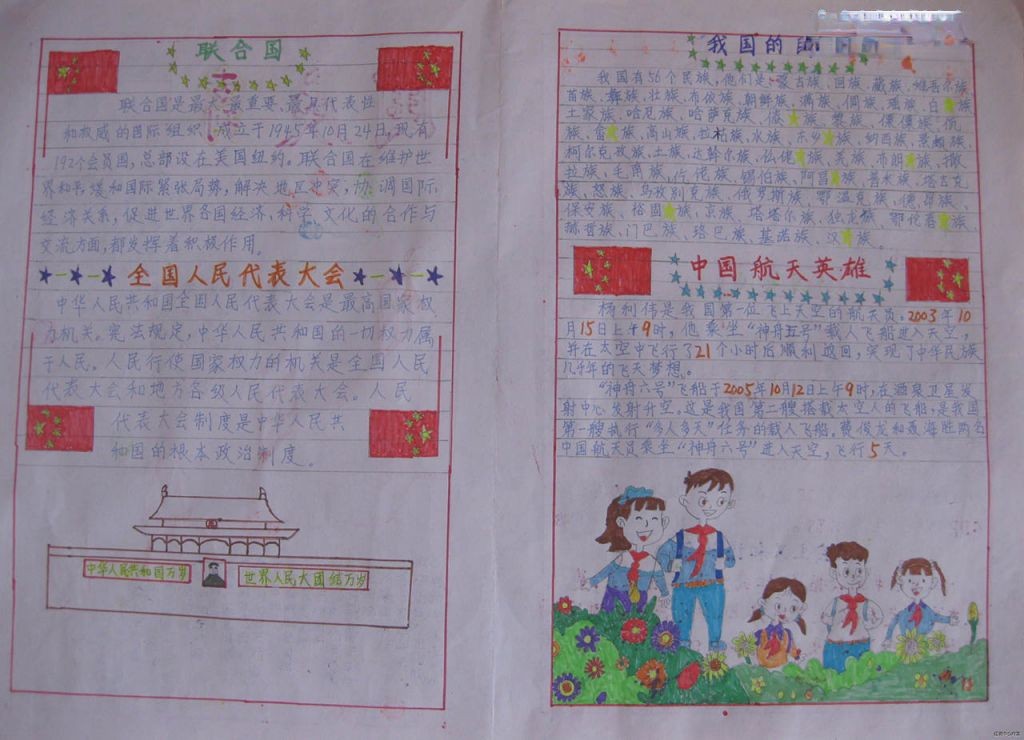 联合国
联合国是最大、最重要、最具代表性
和权威的国际组织,成立于1945年10月24日,现有
192个会员国,总部设在美国纽约。联合国在维护世
界和平,缓和国际紧张局势,解决地区冲突,协调国际
经济关系,促进世界各国经济,科学,文化的合作与
交流方面,都发挥着积极作用。
全国人民代表大会
中华人民共和国全国人民代表大会是最高国家权
力机关。宪法规定,中华人民共和国的一切权力属
于人民。人民行使国家权力的机关是全国人民
代表大会和地方各级人民代表大会。人民
代表大会制度是中华人民共
和国的根本政治制度。
中华人民共和国万岁
世界人民大团结万岁
我国的
我国有56个民族,他们是:蒙古族、回族、藏族、维吾尔族、
苗族、彝族、壮族、布依族、朝鲜族、满族、侗族、瑶族、白族、
土家族、哈尼族、哈萨克族、傣族、黎族、傈僳族、佤
族、畲族、高山族、拉祜族、水族、东乡族、纳西族、景颇族、
柯尔克孜族、土族、达斡尔族、仫佬族、羌族、布朗族、撒
拉族、毛南族、仡佬族、锡伯族、阿昌族、普米族、塔吉克
族、怒族、乌孜别克族、俄罗斯族、鄂温克族、德昂族、
保安族、裕固族、京族、塔塔尔族、独龙族、鄂伦春族、
赫哲族、门巴族、珞巴族、基诺族、汉族。
中国航天英雄
杨利伟是我国第一位飞上天空的航天员。2003年10
月15日上午9时,他乘坐“神舟五号”载人飞船进入天空,
并在太空中飞行了21个小时后顺利返回,实现了中华民族
几千年的飞天梦想。
“神舟六号”飞船于2005年10月12日上午9时,在酒泉卫星发
射中心发射升空。这是我国第二艘搭载太空人的飞船,是我国
第一艘执行“多人多天”任务的载人飞船。费俊龙和聂海胜两名
中国航天员乘坐“神舟六号”进入天空,飞行5天。